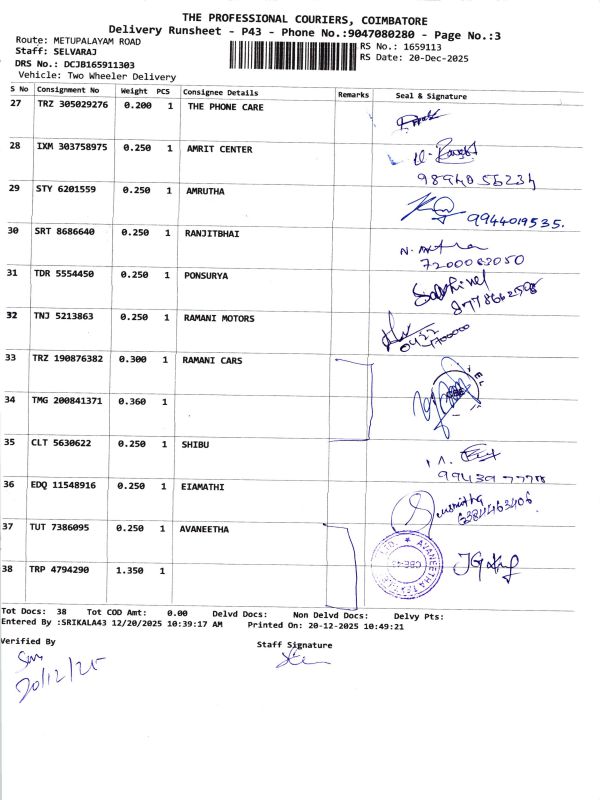 THE PROFESSIONAL COURIERS, COIMBATORE
Delivery Runsheet - P43 - Phone No.:9047080280 - Page No.:3
Route: METUPALAYAM ROAD
RS No.: 1659113
Staff: SELVARAJ
RS Date: 20-Dec-2025
DRS No.: DCJB165911303
Vehicle: Two Wheeler Delivery
S No Consignment No Weight PCS Consignee Details Remarks Seal & Signature
27 TRZ 305029276 0.200 1 THE PHONE CARE
28 IXM 303758975 0.250 1 AMRIT CENTER
9894055234
29 STY 6201559 0.250 1 AMRUTHA
9944019535.
30 SRT 8686640 0.250 1 RANJITBHAI
7200083050
31 TDR 5554450 0.250 1 PONSURYA
Sakthivel
8778662598
32 TNJ 5213863 0.250 1 RAMANI MOTORS
33 TRZ 190876382 0.300 1 RAMANI CARS
34 TMG 200841371 0.360 1
35 CLT 5630622 0.250 1 SHIBU
36 EDQ 11548916 0.250 1 EIAMATHI
6384463406
37 TUT 7386095 0.250 1 AVANEETHA
38 TRP 4794290 1.350 1
Tot Docs: 38 Tot COD Amt: 0.00 Delvd Docs: Non Delvd Docs: Delvy Pts:
Entered By :SRIKALA43 12/20/2025 10:39:17 AM Printed On: 20-12-2025 10:49:21
Verified By
Staff Signature
20/12/25